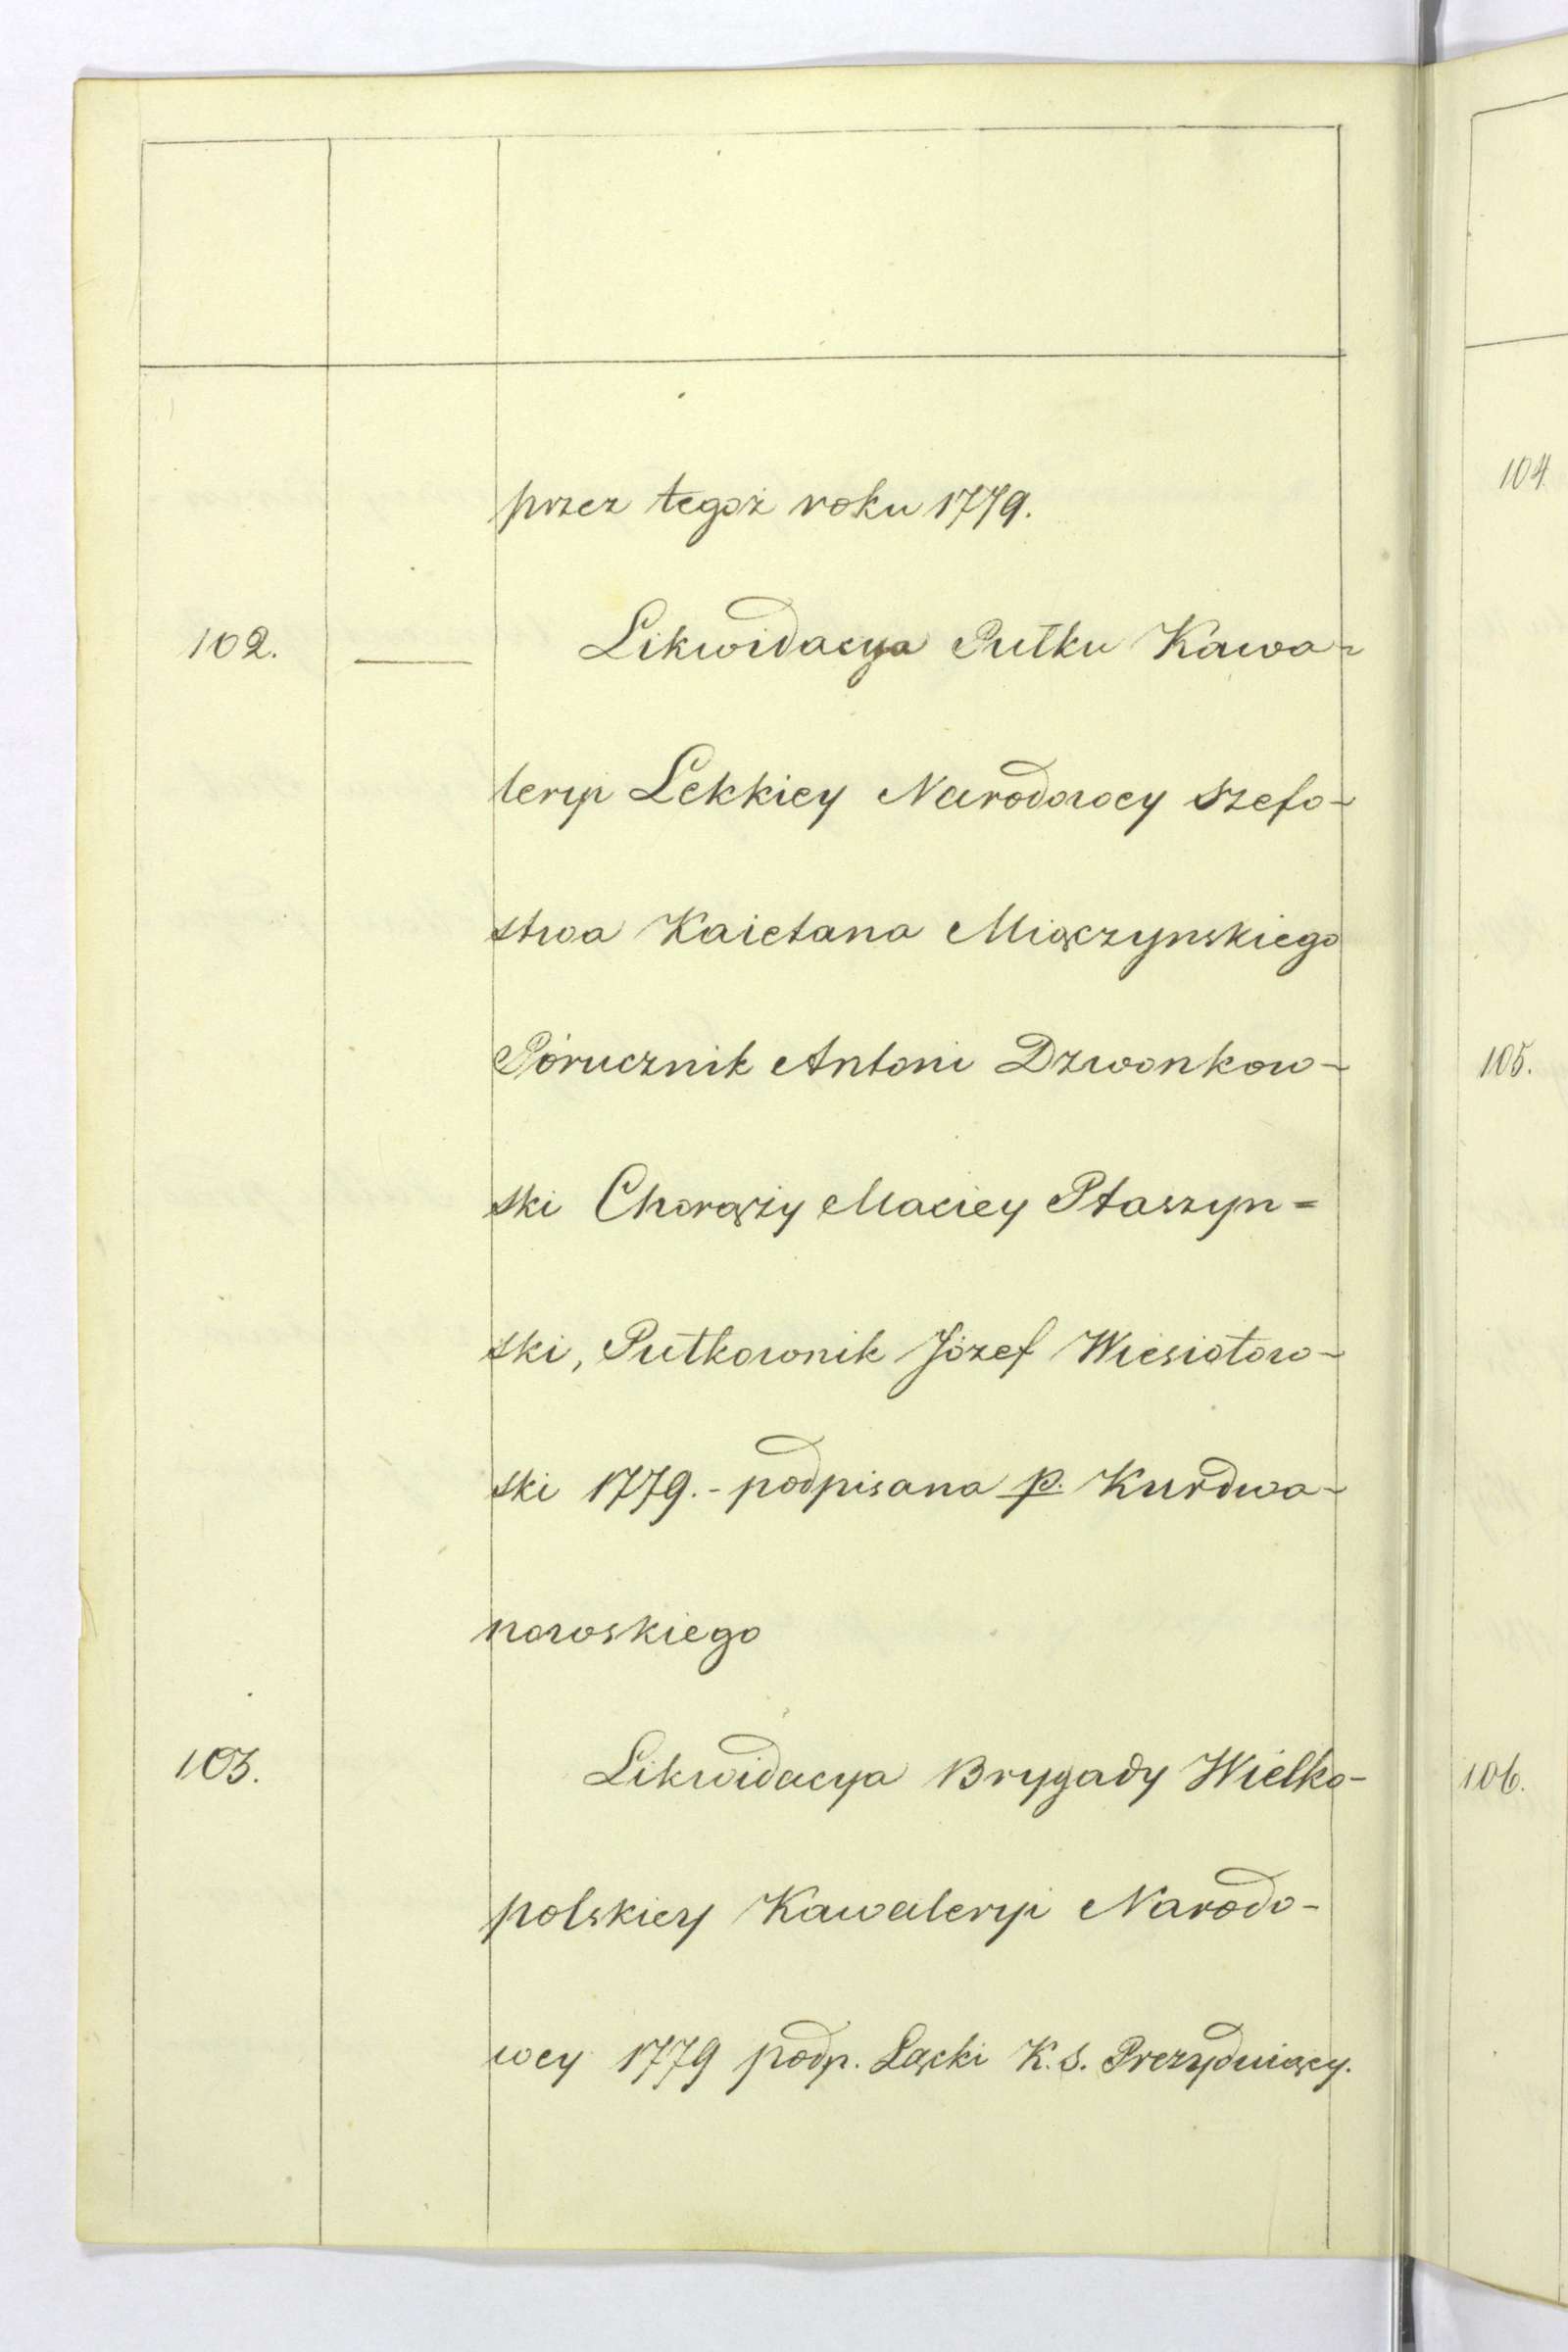 przez tegoż roku 1779.
102. — Likwidacya Pułku Kawa-
leryi Lekkiey Narodowey Szefo-
stwa Kaietana Miączynskiego
Pórucznik Antoni Dzwonkow-
ski Chorąży Maciey Ptaszyn=
ski, Pułkownik Józef Wiesiołow-
ski 1779.- podpisana p. Kurdwa-
nowskiego
103. Likwidacya Brygady Wielko-
polskiey Kawaleryi Narodo-
wey 1779 podp. Łącki K.S. Prezyduiący.
104
105.
106.